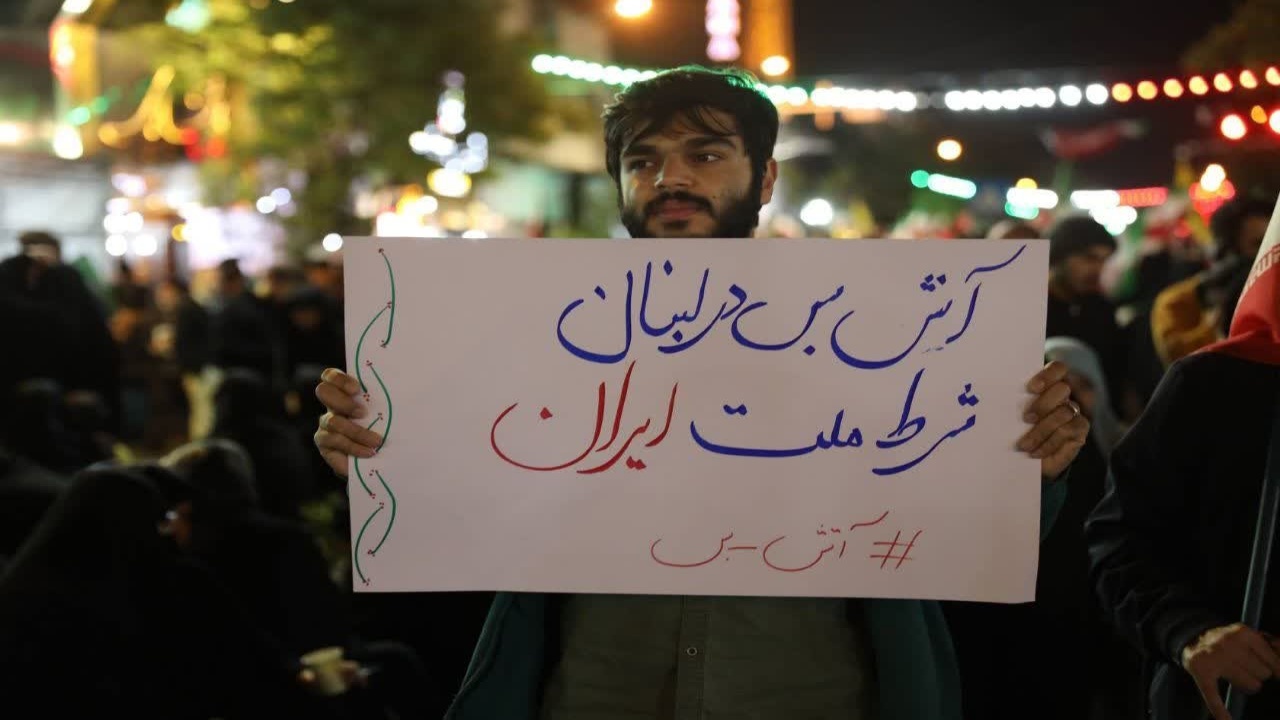 آتش بس در لبنان
شرط ملت ایران
#آتش-بس